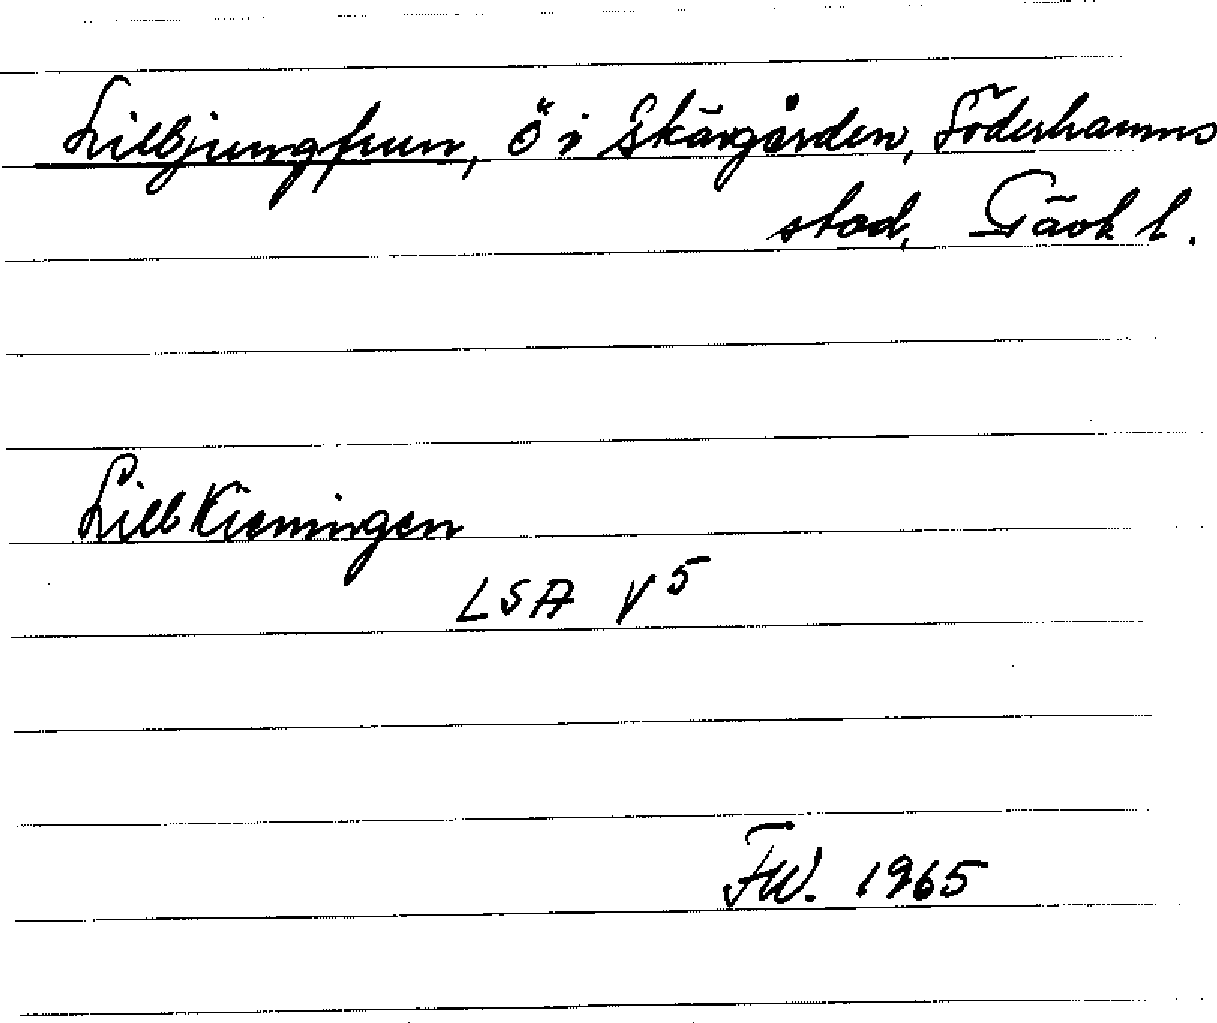 Lilljungfrun, ö i Skärgården, Söderhamns
stad, Gävl l.
Lill Kieningen
LSA V5
FW. 1965